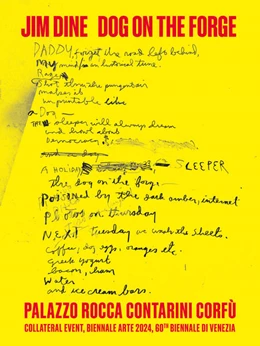 JIM DINE DOG ON THE FORGE
DADDY, forget the road left behind,
My mind is an historical time.
Rage
shot thru the
makes it
unprintable like
a Dog —
THE sleeper will always dream
and howl about
Democracy,
A HOLIDAY SLEEPER
the dog on the forge
Poisoned by the dark amber, internet
photos on thursday
NEXT Tuesday we wash the sheets.
coffee, dog eggs, oranges etc.
Greek yogurt
bacon, ham
Water
and ice cream bars.
PALAZZO ROCCA CONTARINI CORFÙ
COLLATERAL EVENT, BIENNALE ARTE 2024, 60TH BIENNALE DI VENEZIA